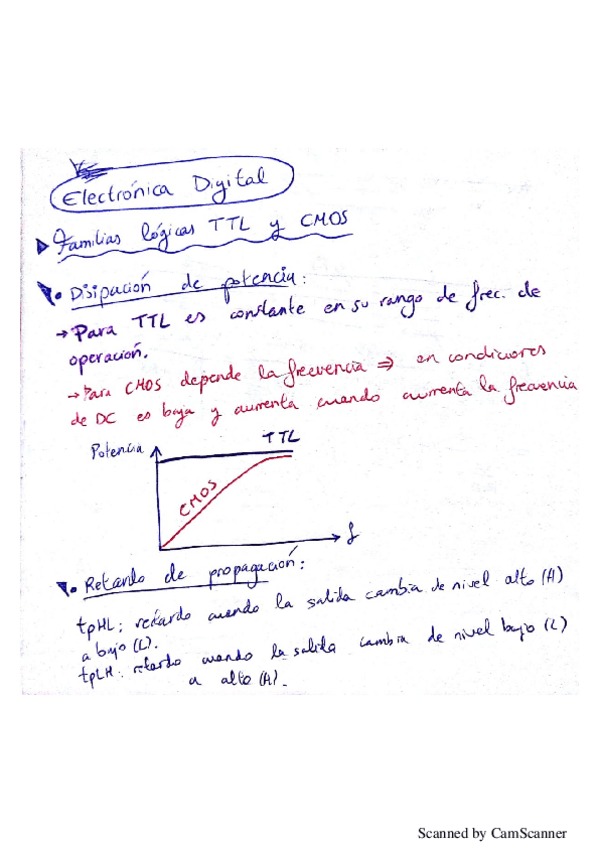 Electrónica Digital
Familias lógicas TTL y CMOS
Disipación de potencia:
→ Para TTL es constante en su rango de frec. de
operación.
→ Para CMOS depende la frecuencia ⇒ en condiciones
de DC es baja y aumenta cuando aumenta la frecuencia
Potencia
TTL
CMOS
f
Retardo de propagación:
tpHL: retardo cuando la salida cambia de nivel alto (H)
a bajo (L).
tpLH: retardo cuando la salida cambia de nivel bajo (L)
a alto (H).
Scanned by CamScanner